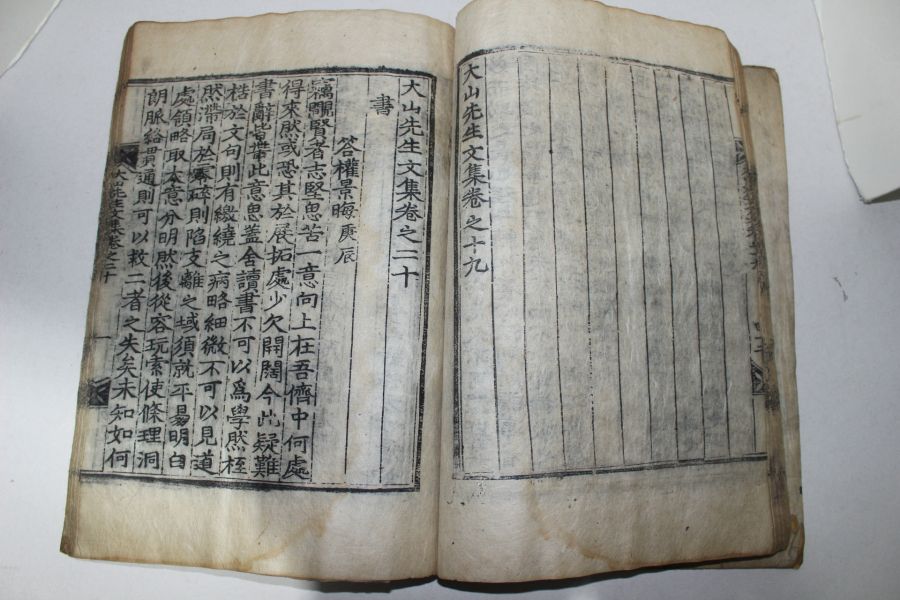 大山先生文集卷之十九
大山先生文集卷之二十
書
答權景晦庚辰
竊覵賢者志堅思苦一意向上在吾儕中何處
得來然或恐其於展拓處少欠開闊今此疑難
書辭皆帶此意思盖舍讀書不可以爲學然桎
梏於文句則有繳繞之病略細微不可以見道
然滯局於 碎則陷支離之域須就平易明白
處領略取本意分明然後從容玩索使條理洞
朗脈絡貫通則可以救二者之失矣未知如何
大山先生文集卷之二十
一